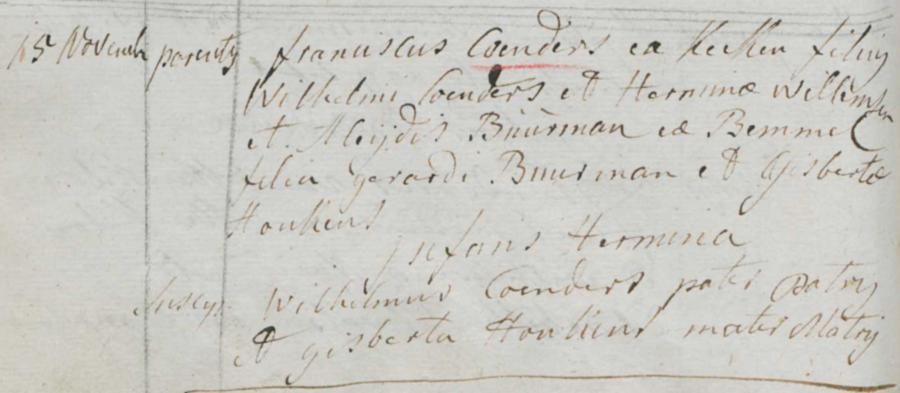 15 Novemb parentes franciscus Coenders ex Keeken filius
Wilhelmi Coenders et Herminæ Willemsen
et Aleijdis Buurman ex Bemmel
filia gerardi Buurman et Gisbertæ
Houkens
Infans Hermina
Suscep. Wilhelmus Coenders pater Patris
et gisberta Houkens mater Matris